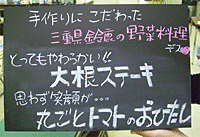 手作りに こだわった
三重県鈴鹿の野菜料理
デス
とってもやわらかい!!
大根ステーキ
思わず笑顔が…
丸ごとトマトのおひたし